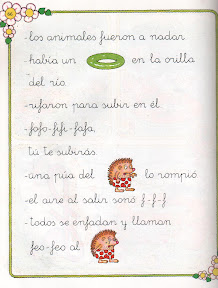 -los animales fueron a nadar
-había un en la orilla
del río.
-rifaron para subir en él.
-fofo-fifi-fafa,
tú te subirás.
-una púa del lo rompió.
-el aire al salir sonó f-f-f
-todos se enfadan y llaman
feo-feo al